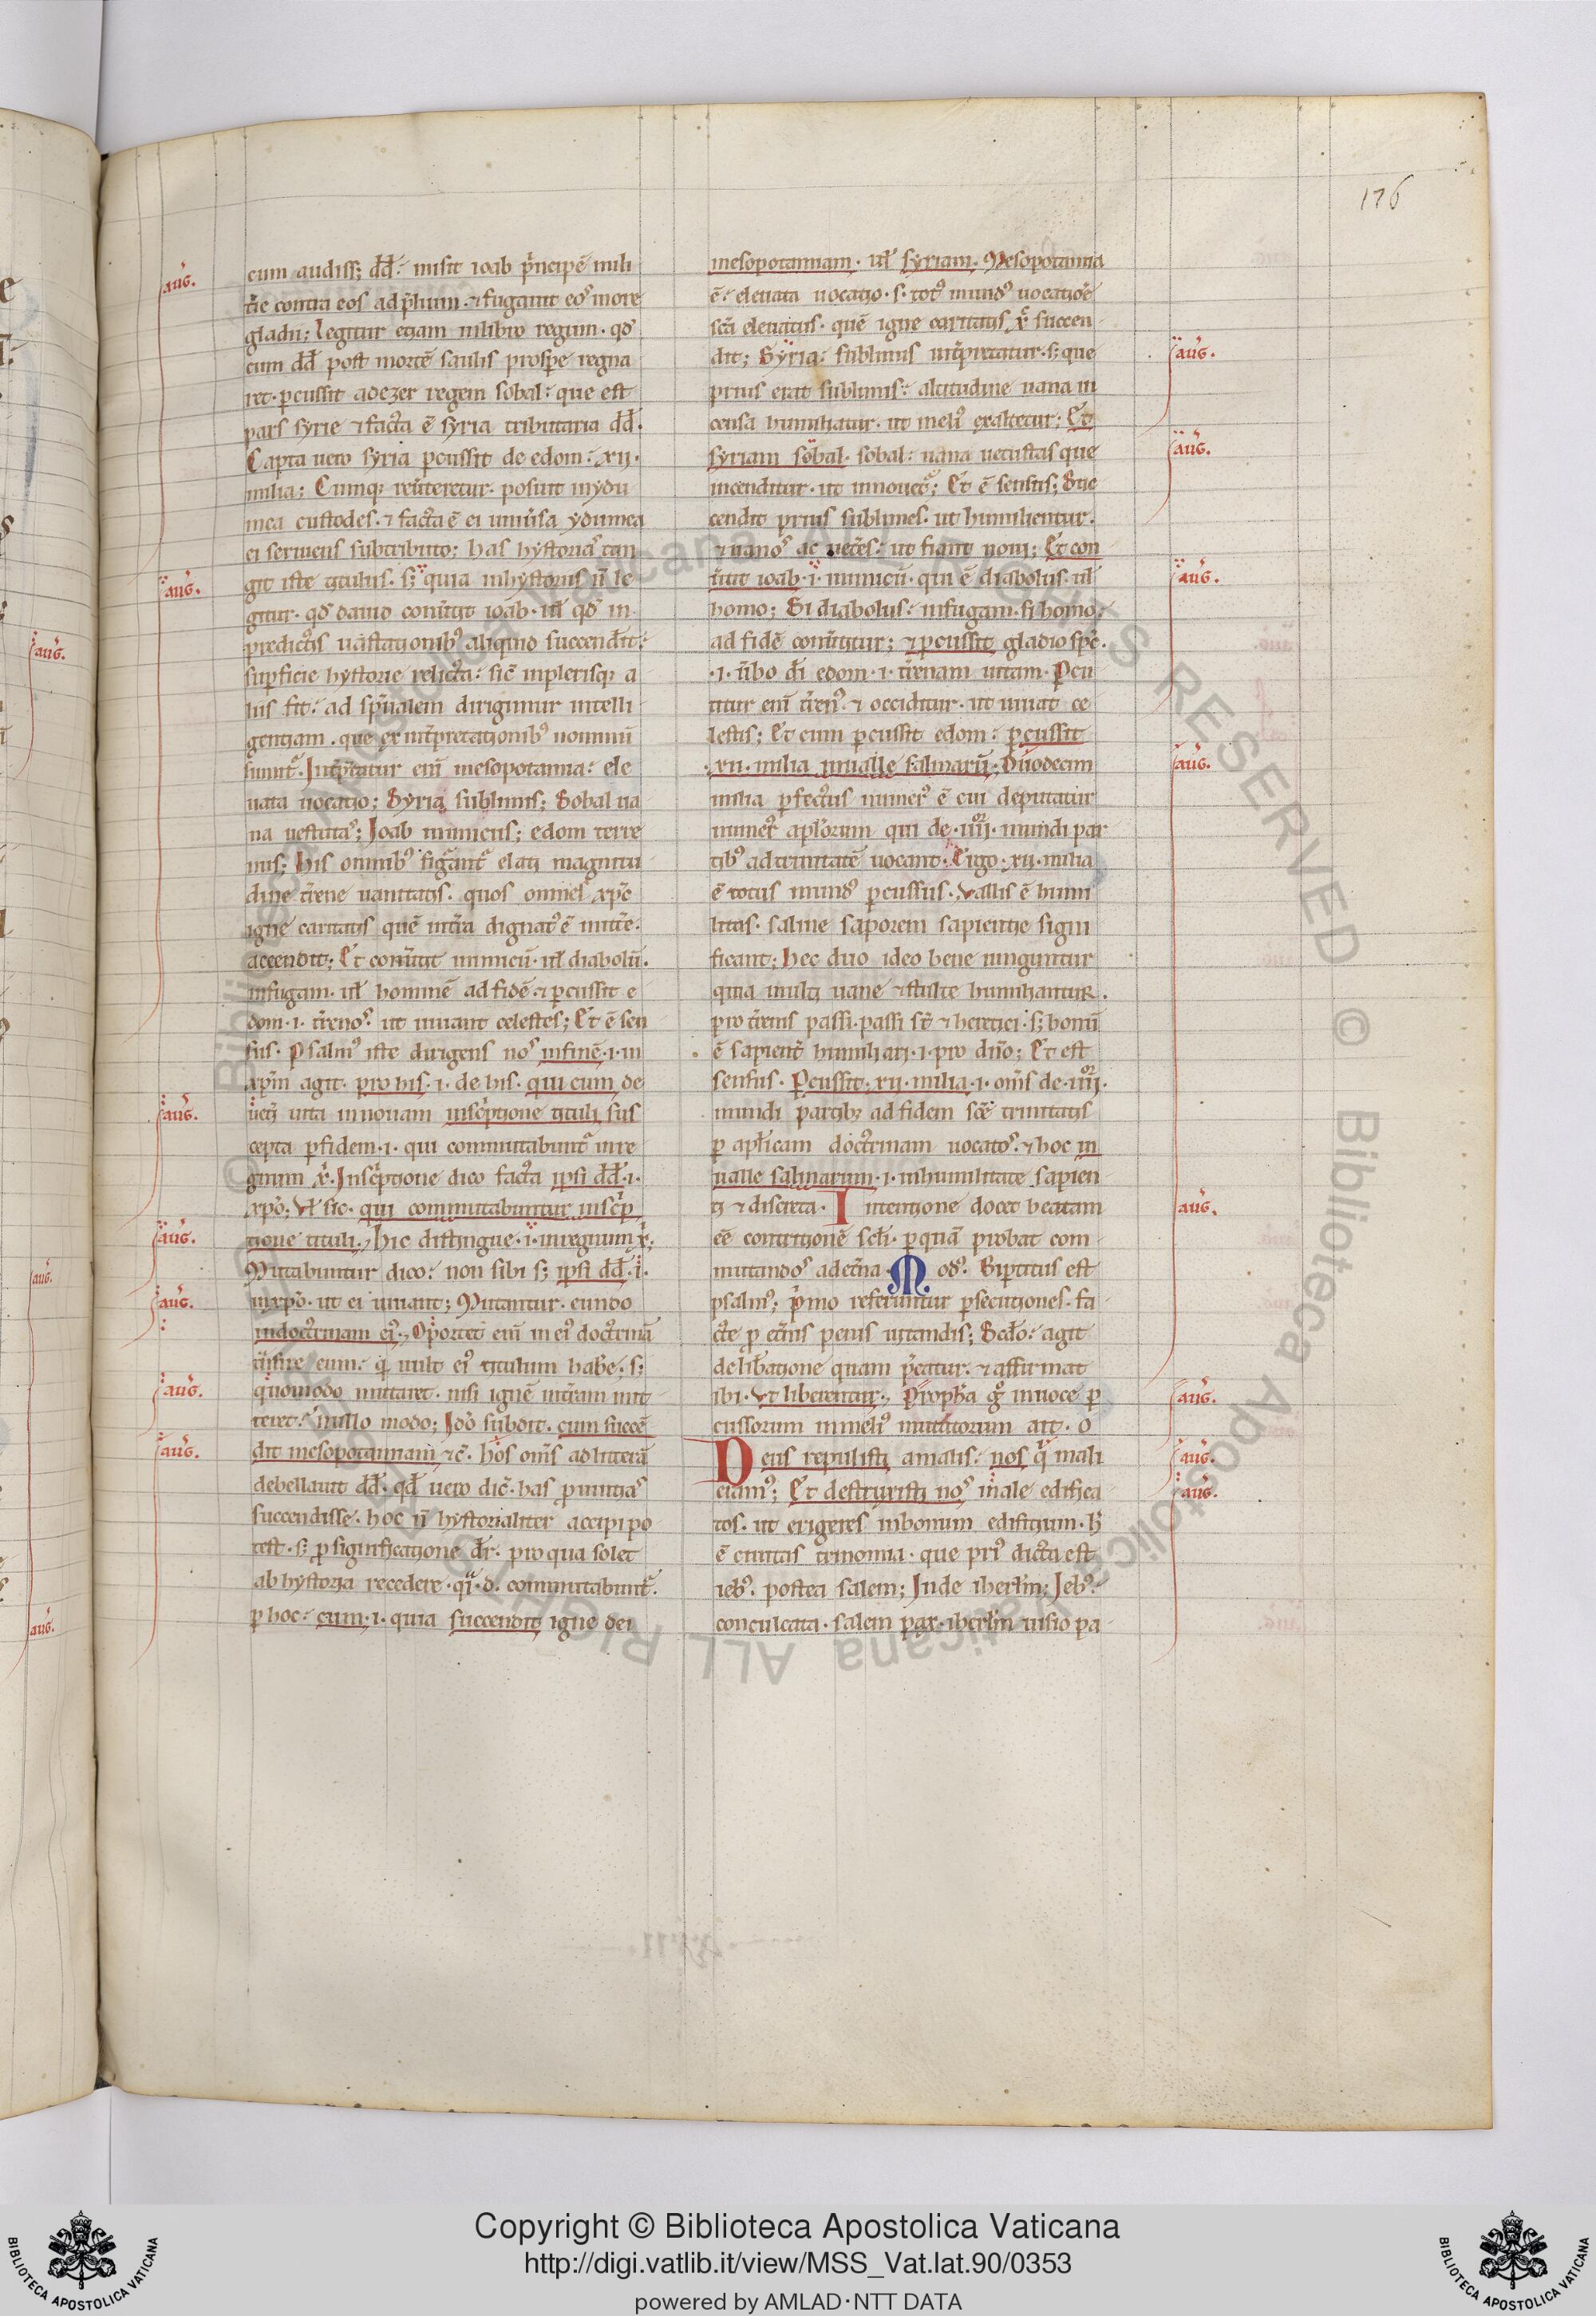 176
cum audiss; dd̄. misit ioab p̄ncipē mili
tie contra eos ad p̄lium. ⁊ fugauit eos more
gladii; Legitur etiam in libro regum. qd̄
cum dd̄ post mortē saulis prospe regna
ret. pcussit adezer regem sobal. que est
pars syrie ⁊ facta ē syria tributaria dd̄.
Capta uero syria pcussit de edom. xii.
milia; Cumq; reūteretur. posuit in ydu
mea custodes. ⁊ facta ē ei uniūsa ydumea
ei seruiens sub tributo; has hystorias tan
git iste titulus. s; quia in hystoriis n̄ le
gitur. qd̄ dauid conūtit ioab. ul̄ qd̄ in
predictis uastationib; aliquid succendit.
suꝑficie hystorie relicta. sic̄ in plerisq; a
liis fit. ad spūalem dirigimur intelli
gentiam. que ex int̄pretationib; nominū
sumit᷑. Int̄ptatur eni mesopotamia. ele
uata uocatio; Syria sublimis; Sobal ua
na uestustas; Ioab inimicus; edom terre
nus; His omnib; figurant᷑ elati magnitu
dine t̄rene uanitatis. quos omnes xpc̄
igne caritatis quē in t̄ra dignat; ē mitte.
accendit; Et conūtit inimicū. ul̄ diabolū.
in fugam. ul̄ hominē ad fidē. ⁊ pcussit e
dom. i. t̄renos. ut uiuant celestes; Et ē sen
sus. Psalm; iste dirigens nos in finē. i. in
xpm̄ agit. pro his. i. de his. qui cum de
uet̄i uita in nouam inscͥptione tituli sus
cepta p fidem. i. qui commutabunt᷑ in re
gnum xͥ. Inscͥptione dico facta ipsi dd̄. i.
xpō; Vl̄ sic. qui commutabuntur inscͥp
tione tituli. hic distingue. i. in regnum xͥ;
Mutabuntur dico. non sibi s; ipsi dd̄. i.
in xpō. ut ei uiuant; Mutantur. eundo
in doctrinam ei;. Oportet eni in ei; doctrinā
t̄nsire eum. qͥ uult ei; titulum habe. s;
quomodo mutaret. nisi ignē in t̄ram mit
teret. nullo modo; Idō subdit. cum succē
dit mesopotamiam ⁊c̄. hos oms̄ ad litterā
debellauit dd̄. qd̄ uero dic̄. has puintias
succendisse. hoc n̄ hystorialiter accipi po
test. s; p significatione dr̄. pro qua solet
ab hystoria recedere. qi. d. commutabunt᷑.
p hoc. cum. i. quia succendit igne dei
mesopotamiam. ul̄ syriam. Mesopotamia
ē. eleuata uocatio. s. tot; mund; uocatiōe
scā eleuatus. quē igne caritatis xͥ succen
dit; Syria. sublimis int̄pretatur. s; que
prius erat sublimis. altitudine uana in
censa humiliatur. ut meli; exaltetur; Et
syriam sobal. sobal. uana uetustas que
incenditur. ut innouet᷑; Et ē sensus; Suc
cendit prius sublimes. ut humilientur.
⁊ uanos ac uetes. ut fiant noui; Et con
ūtit ioab. i. inimicū. qui ē diabolus. ul̄
homo; Si diabolus. in fugam. si homo.
ad fidē conūtitur; ⁊ pcussit gladio spc̄.
.i. ūbo dī edom. i. t̄renam uitam. Pcu
titur eni t̄ren; ⁊ occiditur. ut uiuat ce
lestis; Et cum pcussit edom. pcussit
.xii. milia in ualle salinarū; Duodecim
milia pfectus numer; ē cui deputatur
numer; aplorum qui de .iiiior. mundi par
tib; ad trinitatē uocant. Ergo. xii. milia
ē totus mund; pcussus. Vallis ē humi
litas. saline saporem sapientie signi
ficant; hec duo ideo bene iunguntur
quia multi uane ⁊ stulte humiliantur.
pro t̄renis passi. passi st̄ ⁊ heretici. s; bonū
ē sapient̄ humiliari. i. pro dn̄o; Et est
sensus. Pcussit. xii. milia. i. oms̄ de .iiiior.
mundi partib; ad fidem scē trinitatis
p aplicam doctrinam uocatos. ⁊ hoc in
ualle salinarum. i. in humilitate sapien
ti ⁊ discreta. Intentione docet beatam
eē contritionē scl̄i. p quā probat com
mutandos ad et̄na. Mod;. Bipititus est
psalm;; pͥmo referuntur psecutiones. fa
cte p et̄nis penis uitandis; Scdō. agit
de libatione quam pͥcatur. ⁊ affirmat
ibi. Vt liberentur. Propħa g̊ in uoce p
cussorum in meli; mutatorum ait. o
Deus repulisti a malis. nos qͥ mali
eram;; Et destruxisti nos male edifica
tos. ut erigeres in bonum edifitium. h̄
ē ciuitas trinomia. que pri; dicta est
ieb;. postea salem; Inde iherlm̄; Ieb;.
conculcata. salem pax. iherlm̄ uisio pa
aug.
aug.
aug.
aug.
aug.
aug.
aug.
aug.
aug.
aug.
aug.
aug.
aug.
aug.
aug.
aug.
aug.
Copyright © Biblioteca Apostolica Vaticana
http://digi.vatlib.it/view/MSS_Vat.lat.90/0353
powered by AMLAD·NTT DATA
BIBLIOTECA APOSTOLICA VATICANA
BIBLIOTECA APOSTOLICA VATICANA
© Biblioteca Apostolica Vaticana ALL RIGHTS RESERVED © Biblioteca Apostolica Vaticana ALL RIGHTS RESERVED